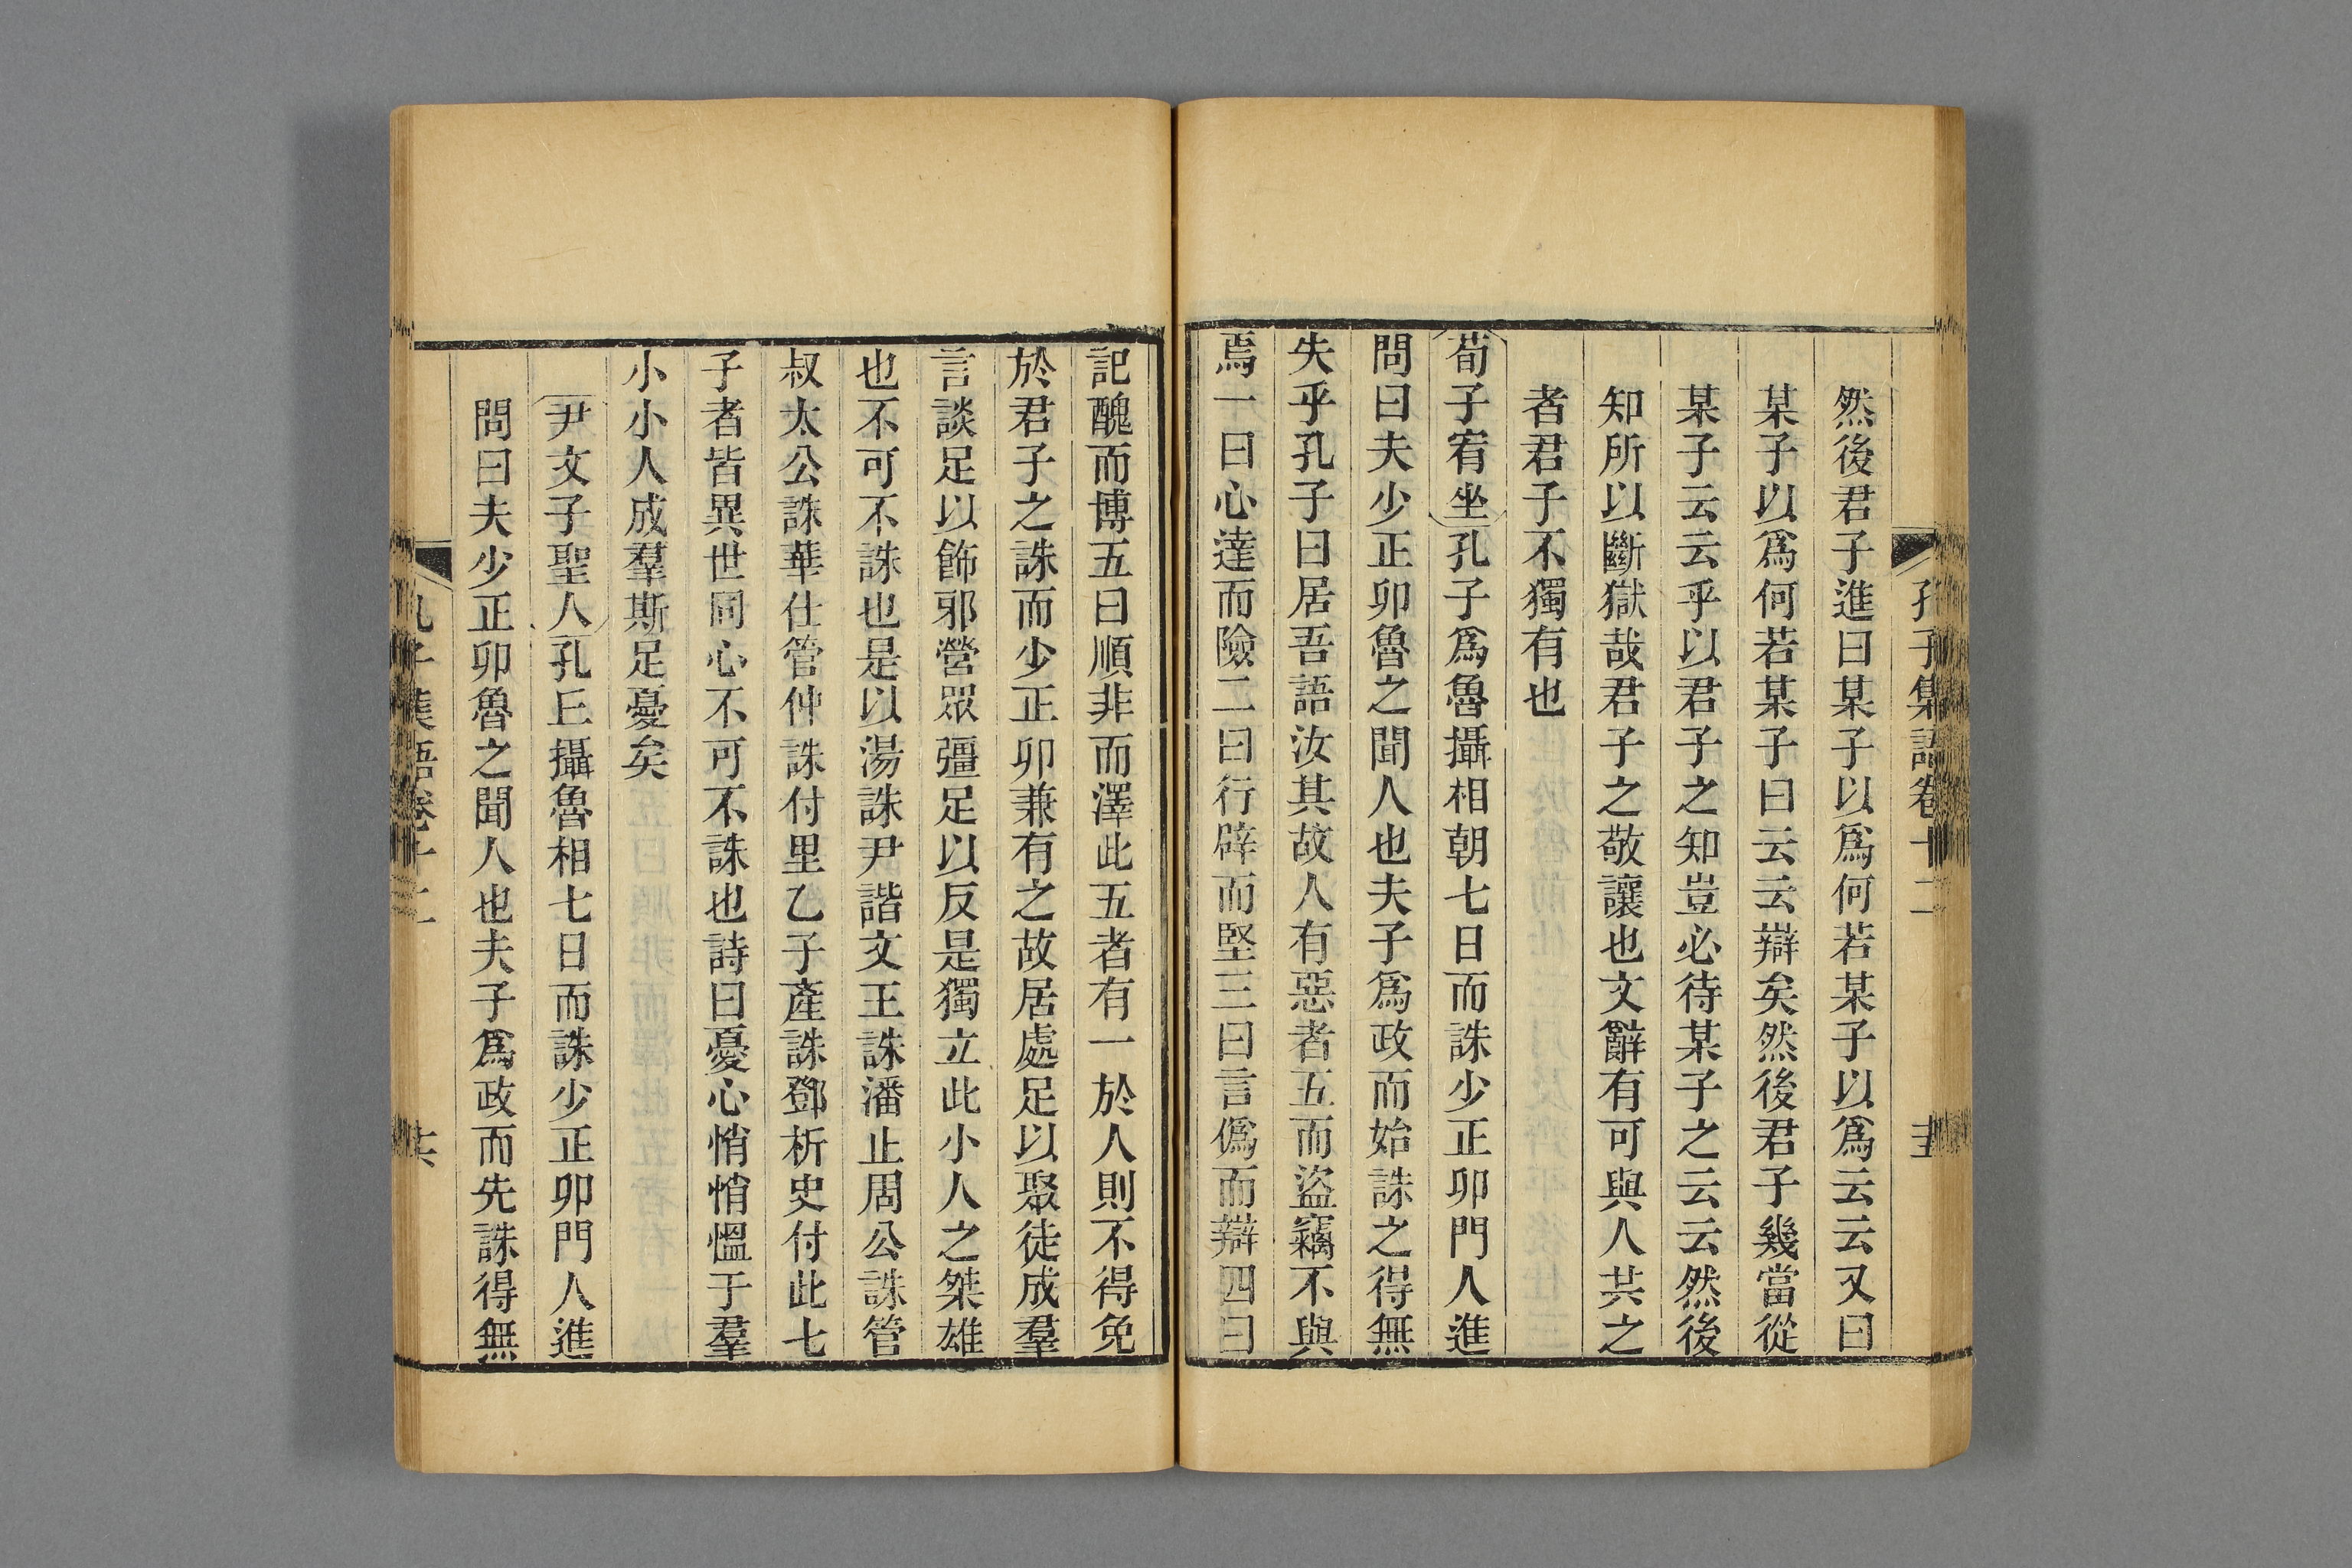 孔子集語卷十二
然後君子進曰某子以爲何若某子以爲云云又曰
某子以爲何若某子曰云云辯矣然後君子幾當從
某子云云乎以君子之知豈必待某子之云云然後
知所以斷獄哉君子之敬讓也文辭有可與人共之
者君子不獨有也
荀子宥坐孔子爲魯攝相朝七日而誅少正卯門人進
問曰夫少正卯魯之聞人也夫子爲政而始誅之得無
失乎孔子曰居吾語汝其故人有惡者五而盜竊不與
焉一曰心達而險二曰行辟而堅三曰言僞而辯四曰
記醜而博五曰順非而澤此五者有一於人則不得免
於君子之誅而少正卯兼有之故居處足以聚徒成羣
言談足以飾邪營眾彊足以反是獨立此小人之桀雄
也不可不誅也是以湯誅尹諧文王誅潘止周公誅管
叔太公誅華仕管仲誅付里乙子產誅鄧析史付此七
子者皆異世同心不可不誅也詩曰憂心悄悄慍于羣
小小人成羣斯足憂矣
尹文子聖人孔丘攝魯相七日而誅少正卯門人進
問曰夫少正卯魯之聞人也夫子爲政而先誅得無
孔子集語卷十二